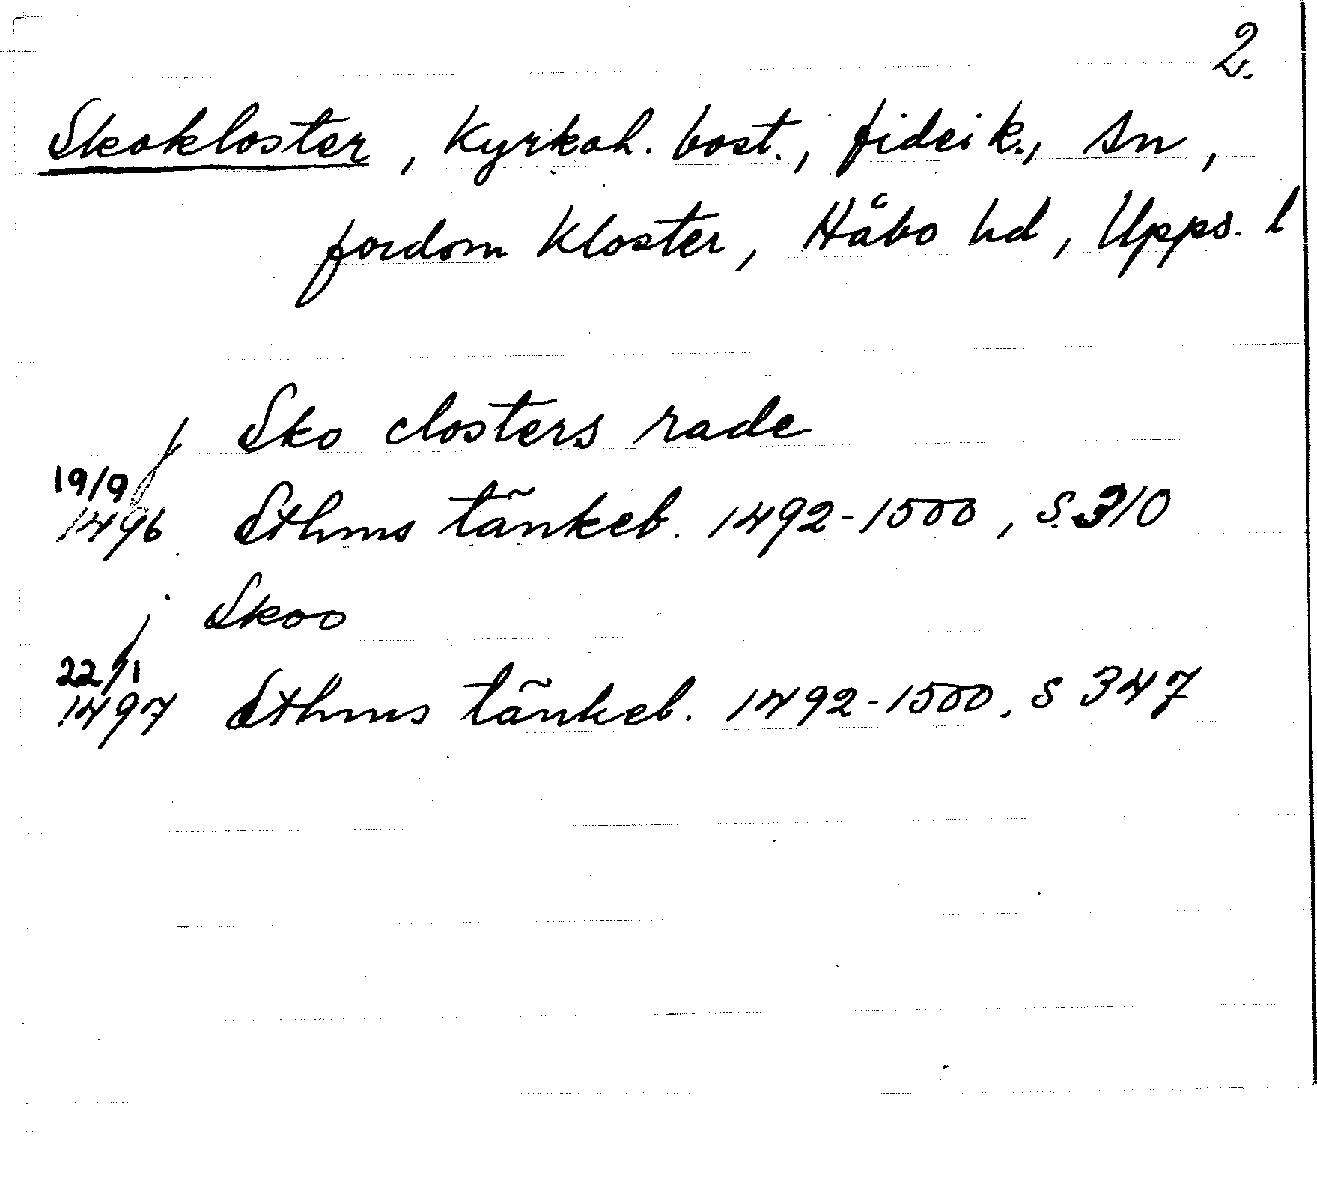 2.
Skokloster, Kyrkoh. bost., fideik., sn,
fordom kloster, Håbo hd, Upps. l
j Sko closters rade
19/9
1496 Sthms tänkeb. 1492-1500, s. 310
j Skoo
22/1
1497 Sthms tänkeb. 1492-1500. s 347